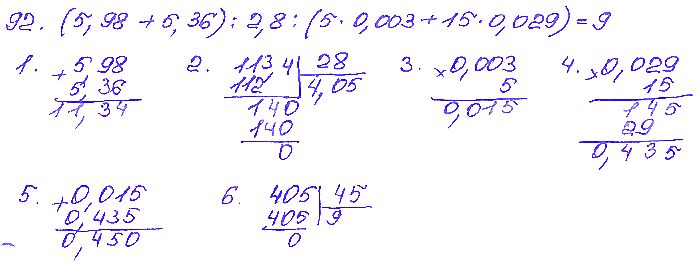 92. (5,98 + 5,36) : 2,8 : (5 · 0,003 + 15 · 0,029) = 9
1. + 5,98
5,36
11,34
2. 113 4 | 28
112 4,05
140
140
0
3. × 0,003
5
0,015
4. × 0,029
15
145
29
0,435
5. + 0,015
0,435
0,450
6. 405 | 45
405 9
0